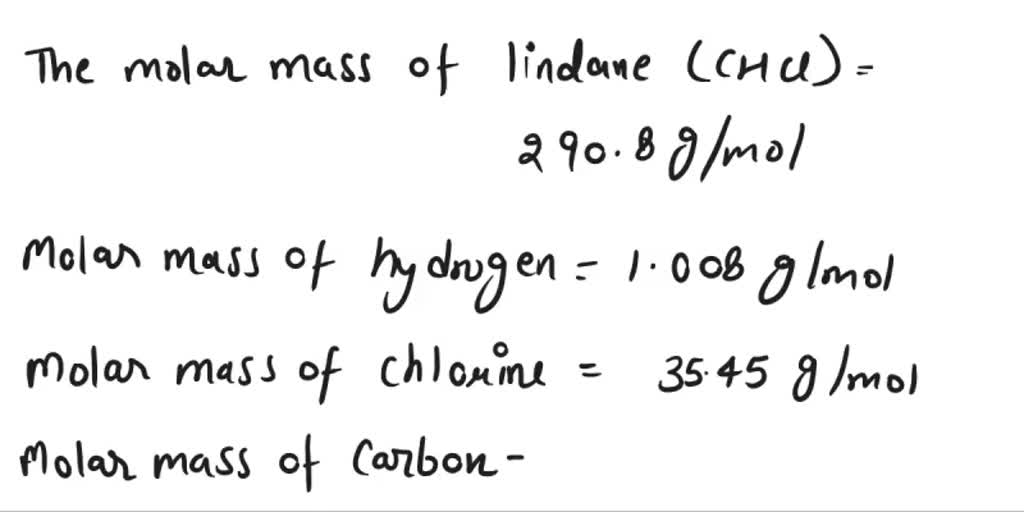 The molar mass of lindane (CHCl) =
290.8 g/mol
Molar mass of hydrogen = 1.008 g/mol
Molar mass of chlorine = 35.45 g/mol
Molar mass of Carbon -